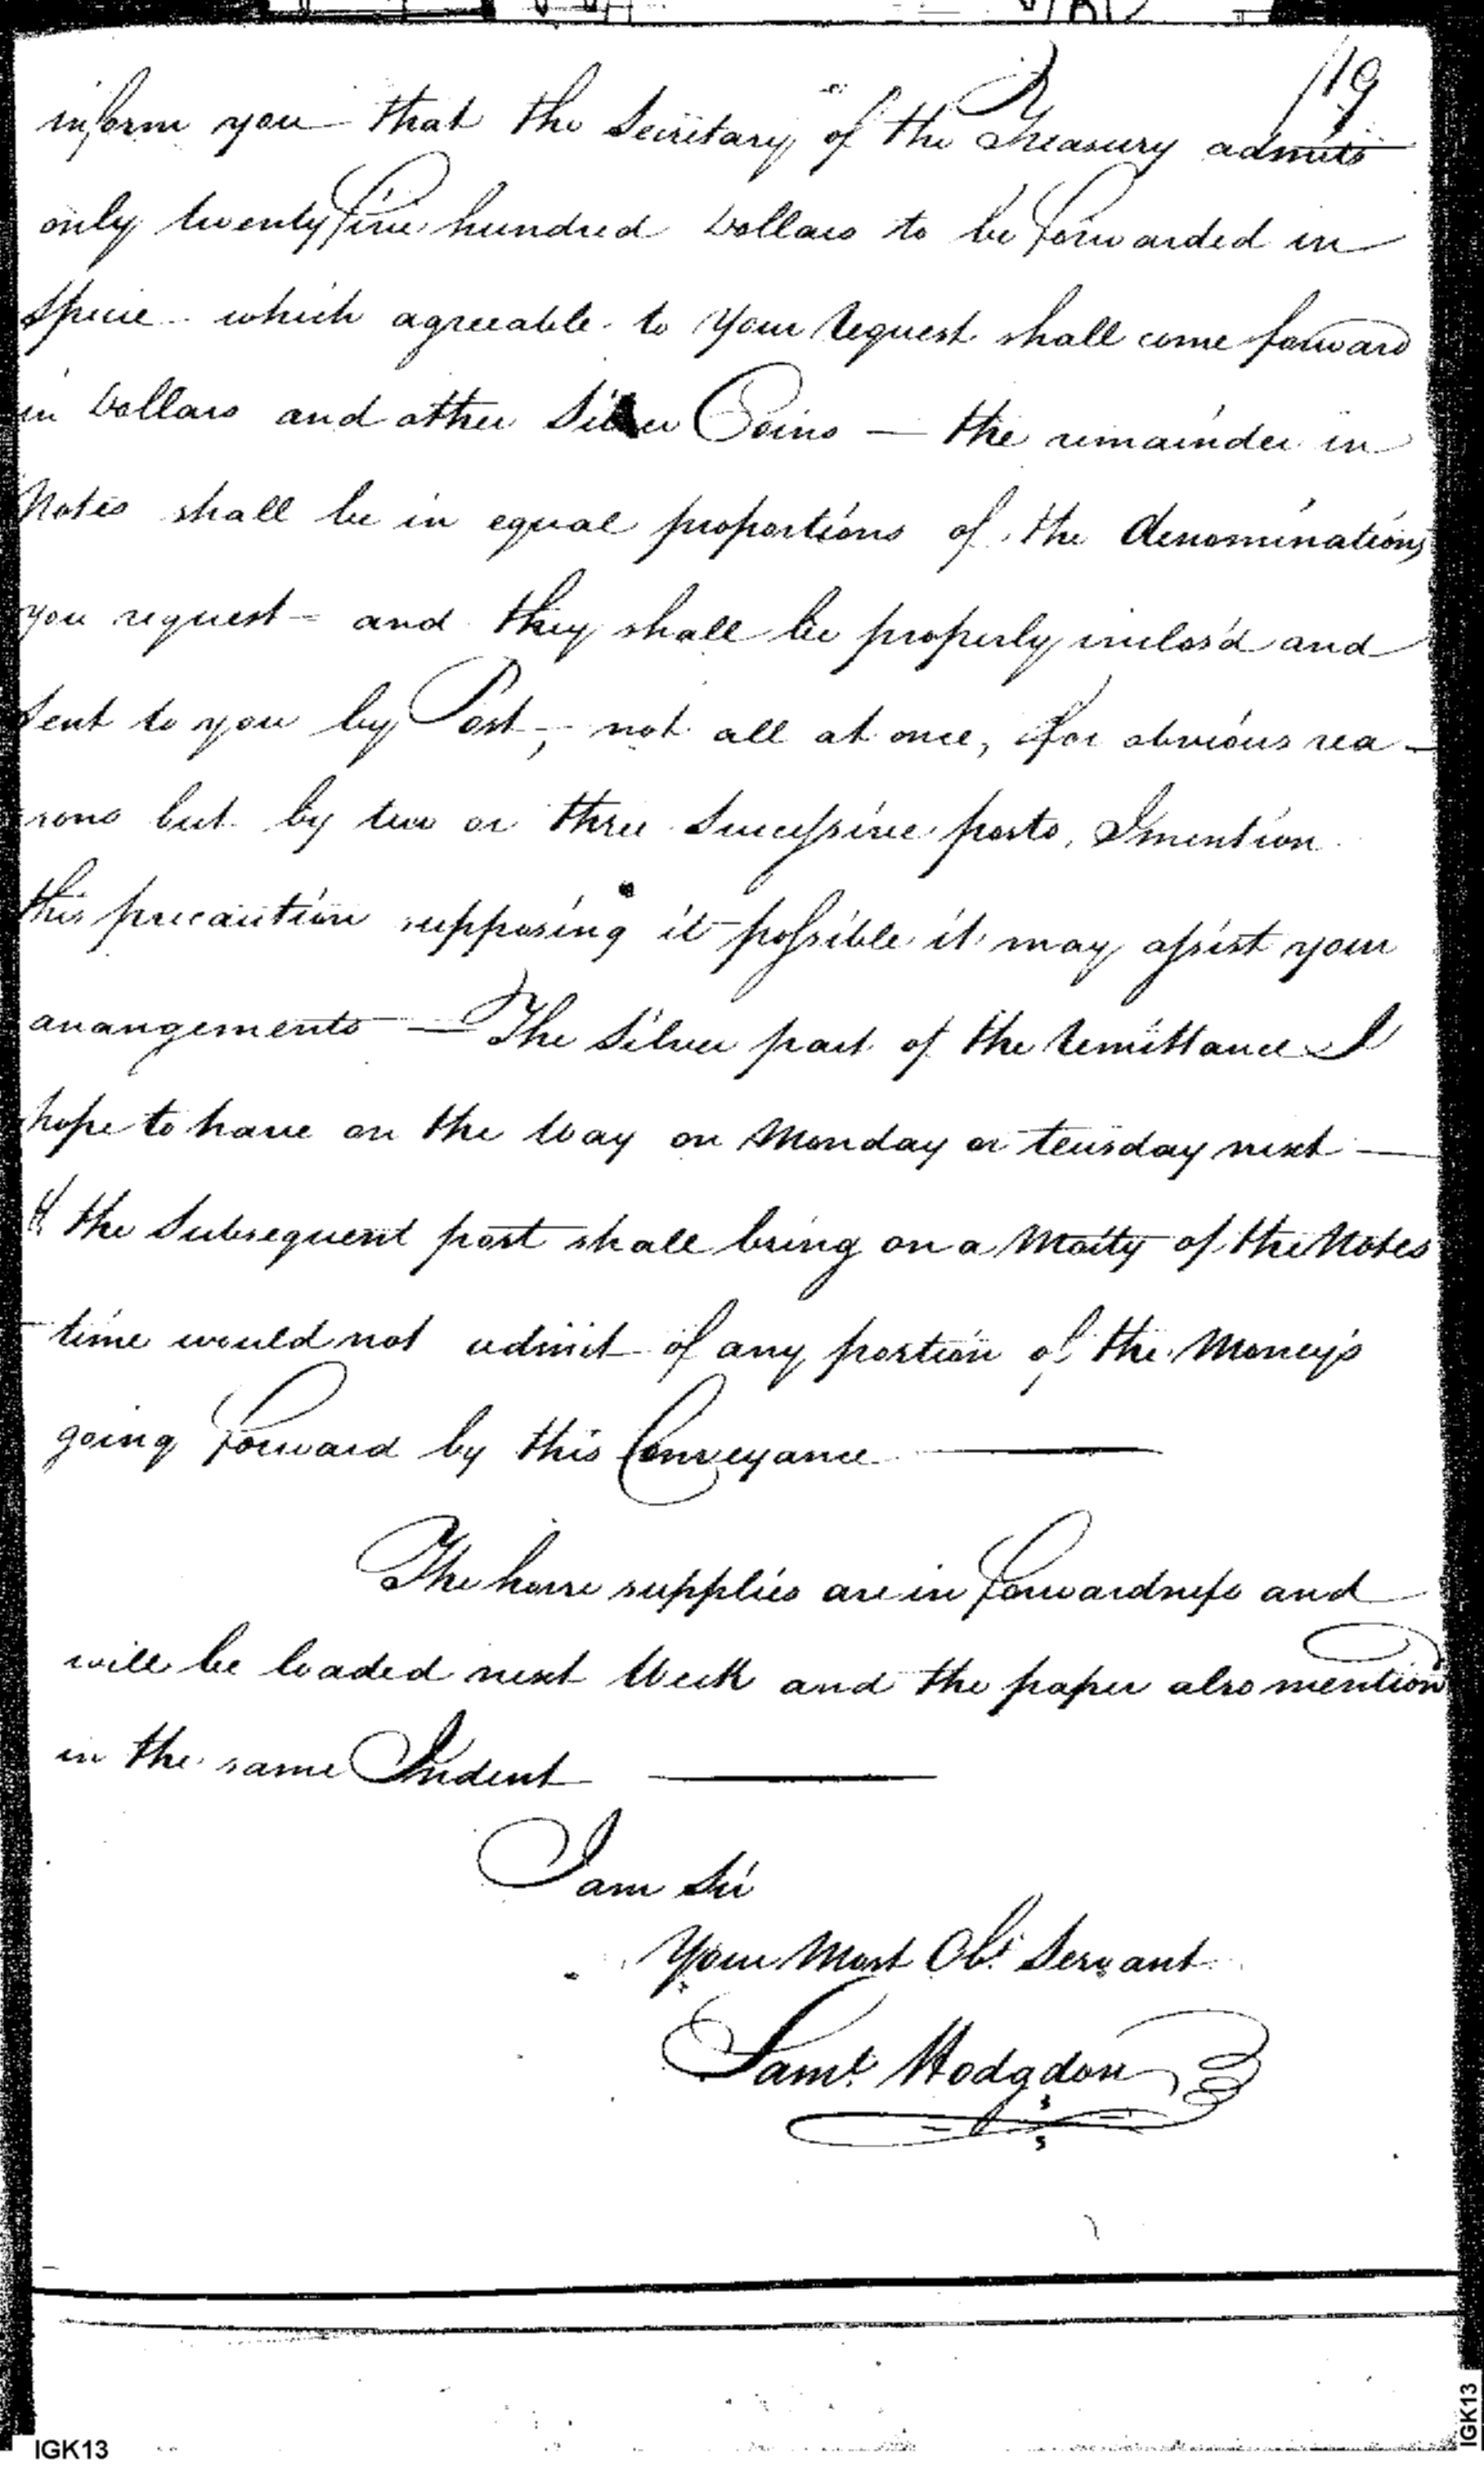 119
inform you that the Secretary of the Treasury admits
only twenty five hundred Dollars to be forwarded in
Specie - which agreeable to your request shall come forward
in Dollars and other Silver Coins — the remainder in
Notes shall be in equal proportions of the denominations
you request - and they shall be properly inclos'd and
Sent to you by Post, - not all at once, for obvious rea-
sons but by two or three Successive posts, I mention
this precaution supposing it possible it may assist your
arangements — The Silver part of the remittance I
hope to have on the way on Monday or teusday next —
& the Subsequent post shall bring on a Moity of the Notes
time would not admit of any portion of the Money's
going forward by this Conveyance —
The horse supplies are in forwardness and
will be loaded next Week and the paper also mention
in the same Indent —
I am Sir
Your Most Obt. Servant
Saml. Hodgdon
IGK13
IGK13